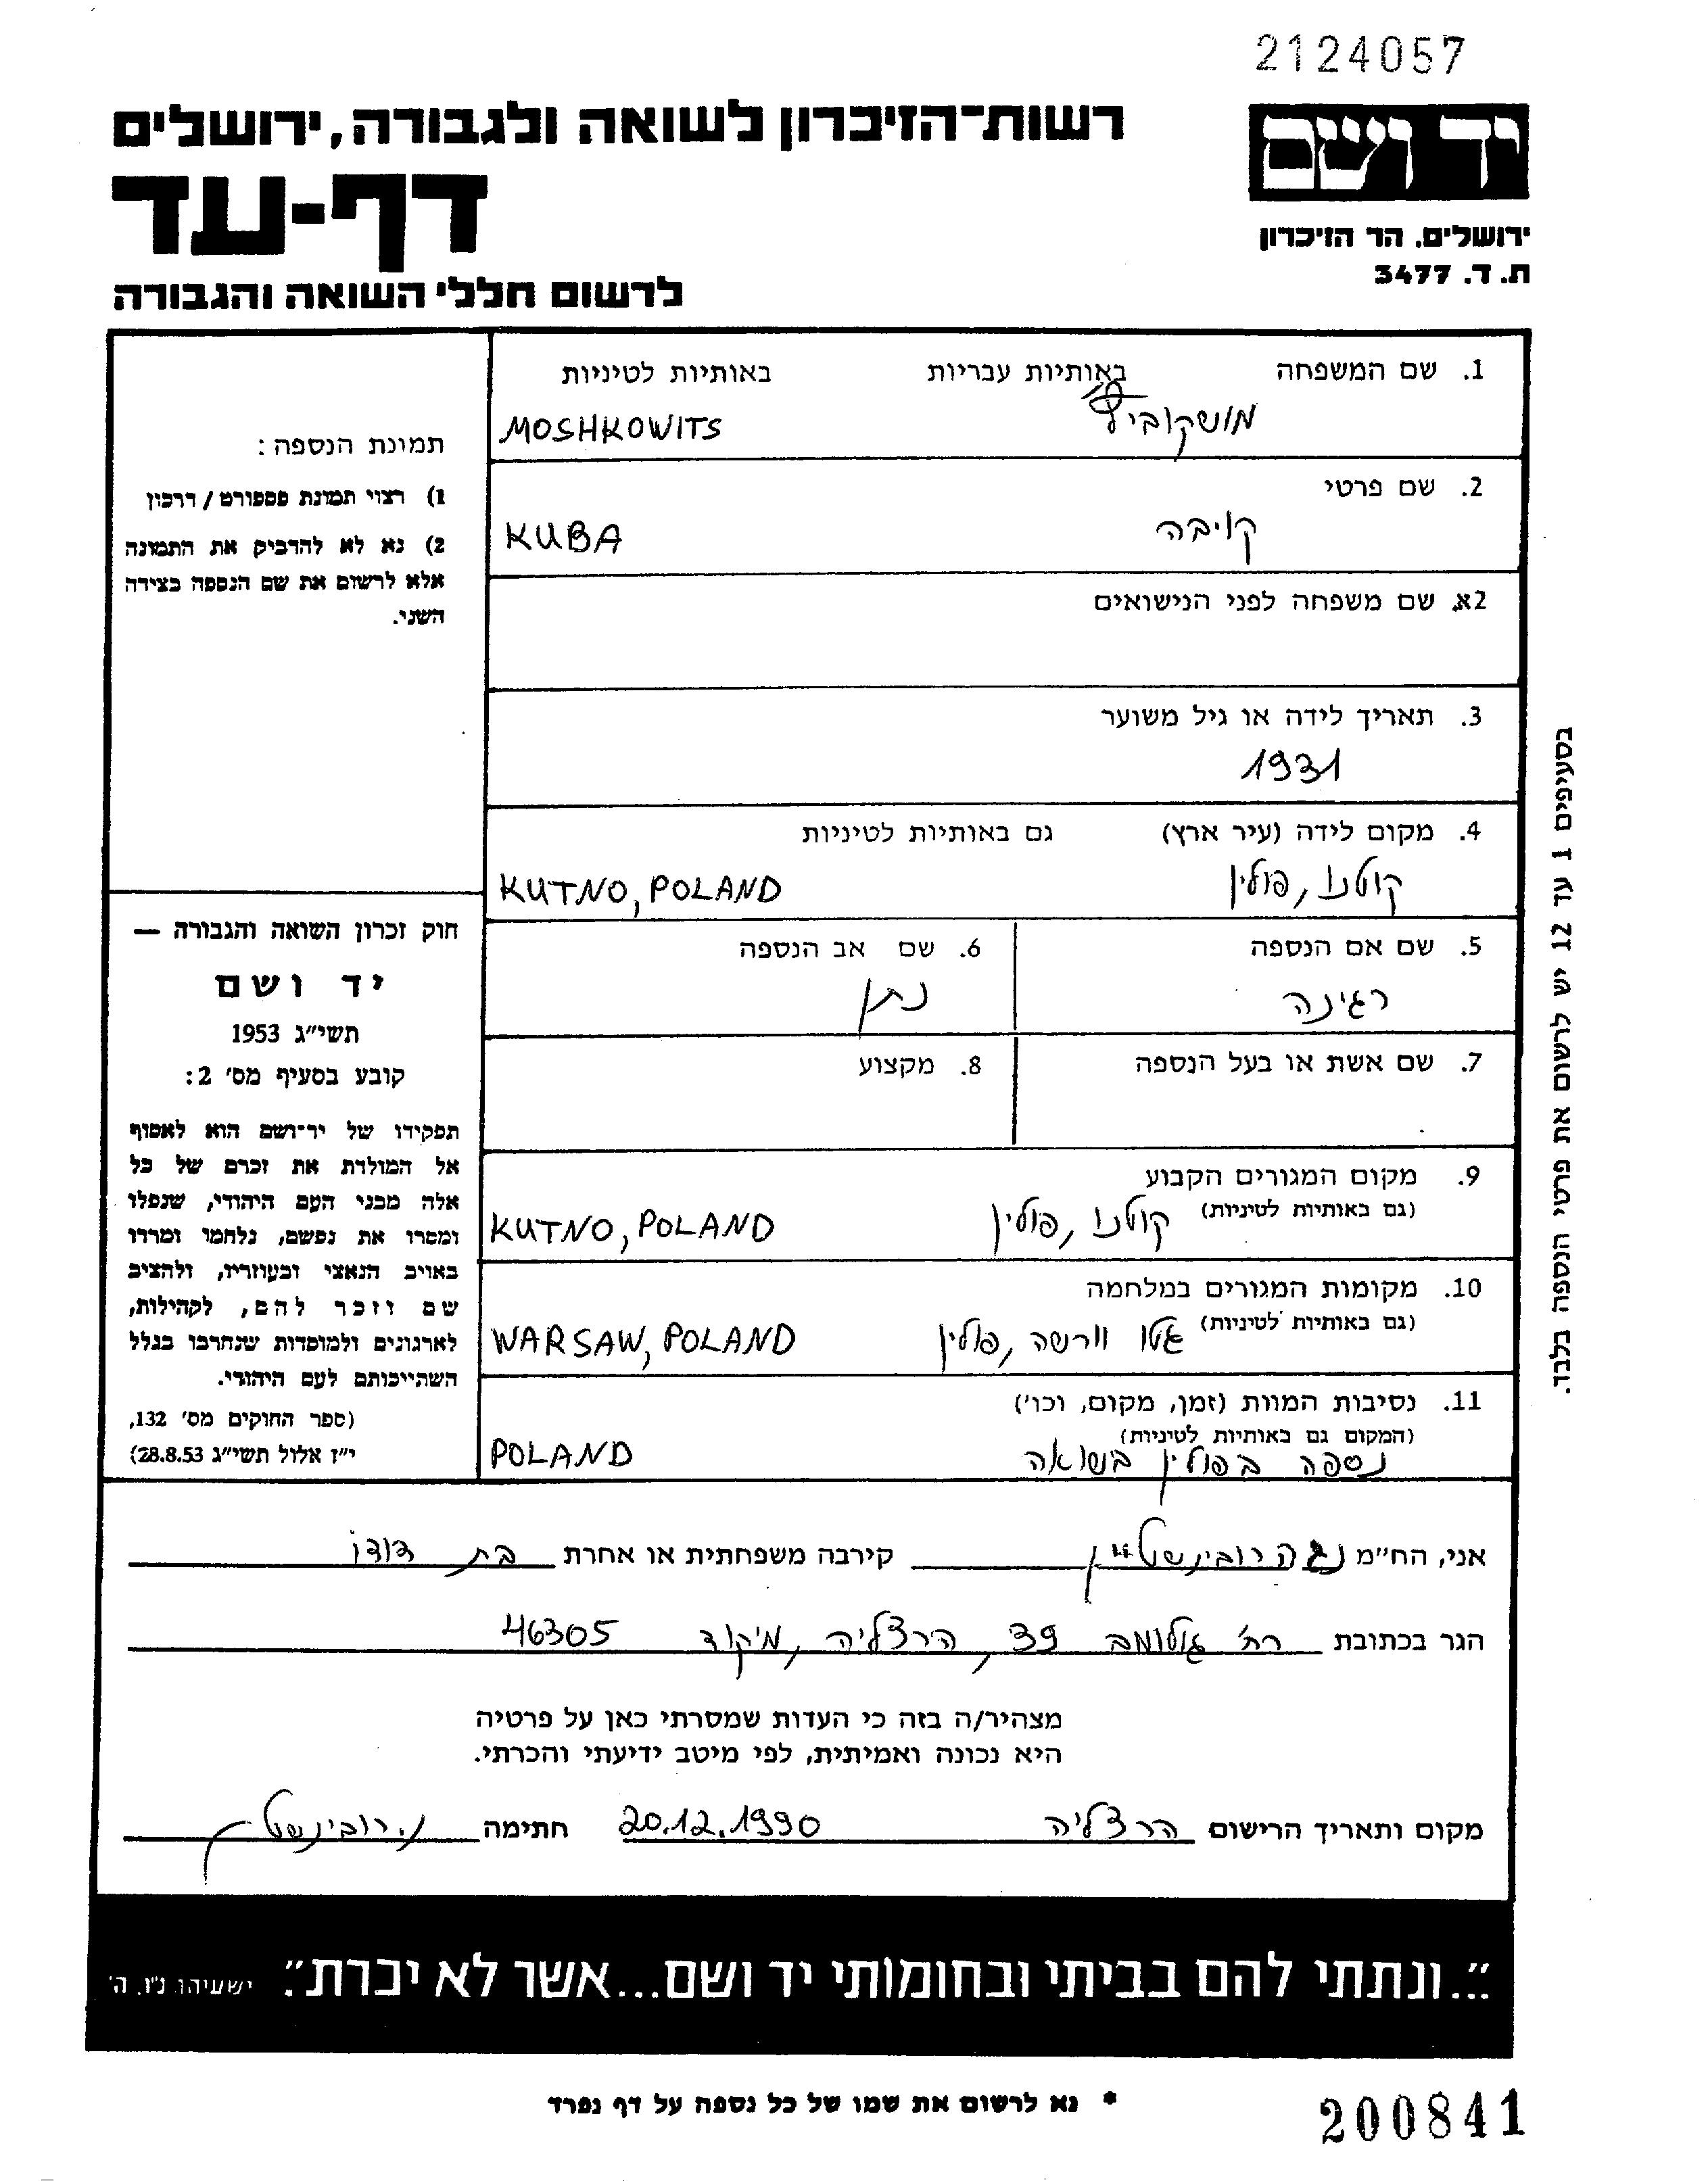 2124057
רשות־הזיכרון לשואה ולגבורה, ירושלים
יד ושם
דף-עד
ירושלים. הר הזיכרון
ת. ד. 3477
לרשום חללי השואה והגבורה
1. שם המשפחה באותיות עבריות באותיות לטיניות
MOSHKOWITS
2. שם פרטי
קויבה KUBA
2א. שם משפחה לפני הנישואים
3. תאריך לידה או גיל משוער
1931
4. מקום לידה (עיר ארץ) גם באותיות לטיניות
קוטנו, פולין KUTNO, POLAND
5. שם אם הנספה 6. שם אב הנספה
רגינה נתן
7. שם אשת או בעל הנספה 8. מקצוע
9. מקום המגורים הקבוע
(גם באותיות לטיניות) קוטנו, פולין KUTNO, POLAND
10. מקומות המגורים במלחמה
(גם באותיות לטיניות) גטו וורשה, פולין WARSAW, POLAND
11. נסיבות המוות (זמן, מקום, וכו')
(המקום גם באותיות לטיניות)
נספה בפולין בשואה POLAND
תמונת הנספה:
1) רצוי תמונת פספורט / דרכון
2) נא לא להדביק את התמונה
אלא לרשום את שם הנספה בצידה
השני.
חוק זכרון השואה והגבורה —
יד ושם
תשי״ג 1953
קובע בסעיף מס' 2:
תפקידו של יד־ושם הוא לאסוף
אל המולדת את זכרם של כל
אלה מבני העם היהודי, שנפלו
ומסרו את נפשם, נלחמו ומרדו
באויב הנאצי ובעוזריו, ולהציב
שם וזכר להם, לקהילות,
לארגונים ולמוסדות שנחרבו בגלל
השתייכותם לעם היהודי.
(ספר החוקים מס' 132,
י״ז אלול תשי״ג 28.8.53)
בסעיפים 1 עד 12 יש לרשום את פרטי הנספה בלבד.
אני, הח״מ נגה רובינשטיין קירבה משפחתית או אחרת בת דודו
הגר בכתובת רח' גולומב 39, הרצליה, מיקוד 46305
מצהיר/ה בזה כי העדות שמסרתי כאן על פרטיה
היא נכונה ואמיתית, לפי מיטב ידיעתי והכרתי.
מקום ותאריך הרישום הרצליה 20.12.1990 חתימה נ. רובינשטיין
״...ונתתי להם בביתי ובחומותי יד ושם...אשר לא יכרת״. ישעיהו נ״ו, ה'
* נא לרשום את שמו של כל נספה על דף נפרד
200841